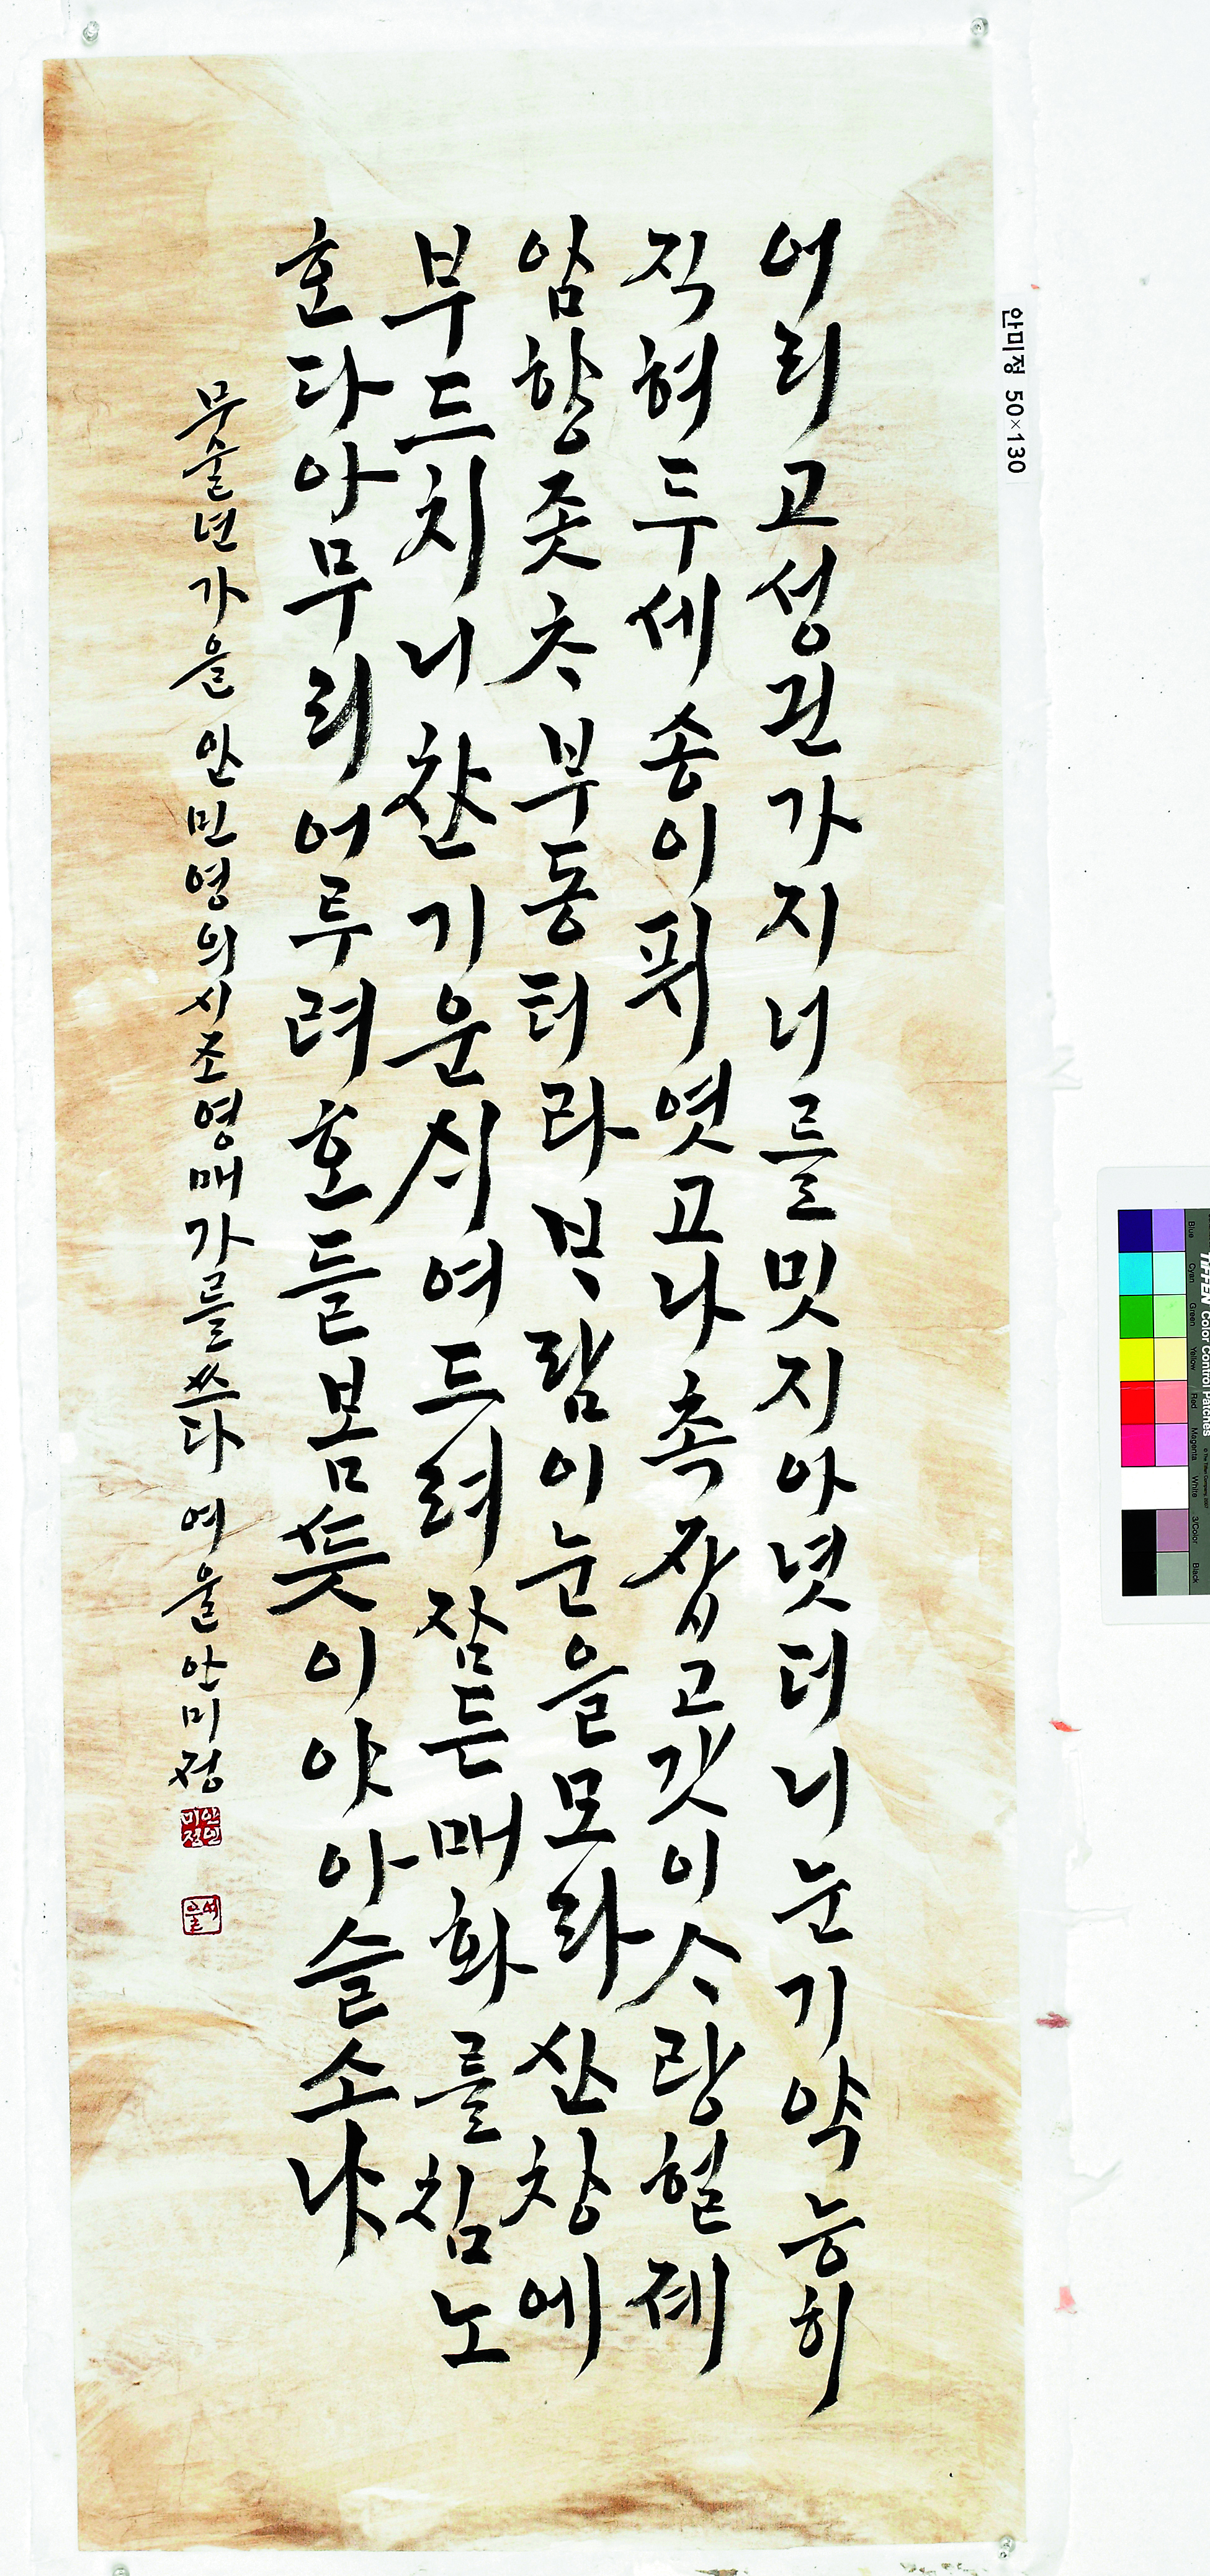 안미정 50×130
어리고성긘가지너를밋지아녓더니눈기약능히
직혀두세송이퓌엿고나촉잡고갓이ᄉᆞ랑헐졔
암향좃ᄎᆞ부동터라ᄇᆞ람이눈을모라산창에
부드치니찬기운ᄉᆡ여드려잠든매화를침노
혼다아무리어루려호들봄ᄯᅳᆺ이야아슬소냐
무술년가을 안민영의시조영매가를쓰다 여울안미정
안인미정
여울
TIFFEN Color Control Patches
Blue Cyan Green Yellow Red Magenta White 3/Color Black